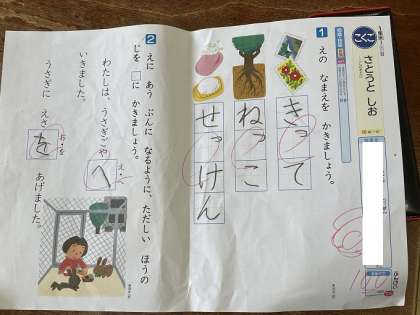 こくご
さとうと しお
1 えの なまえを かきましょう。
きって
ねっこ
せっけん
2 えに あう ぶんに なるように、ただしい ほうの
じを □に かきましょう。
わたしは、うさぎごや
え・へ
へ
いきました。
うさぎに えさ
お・を
を
あげました。
100